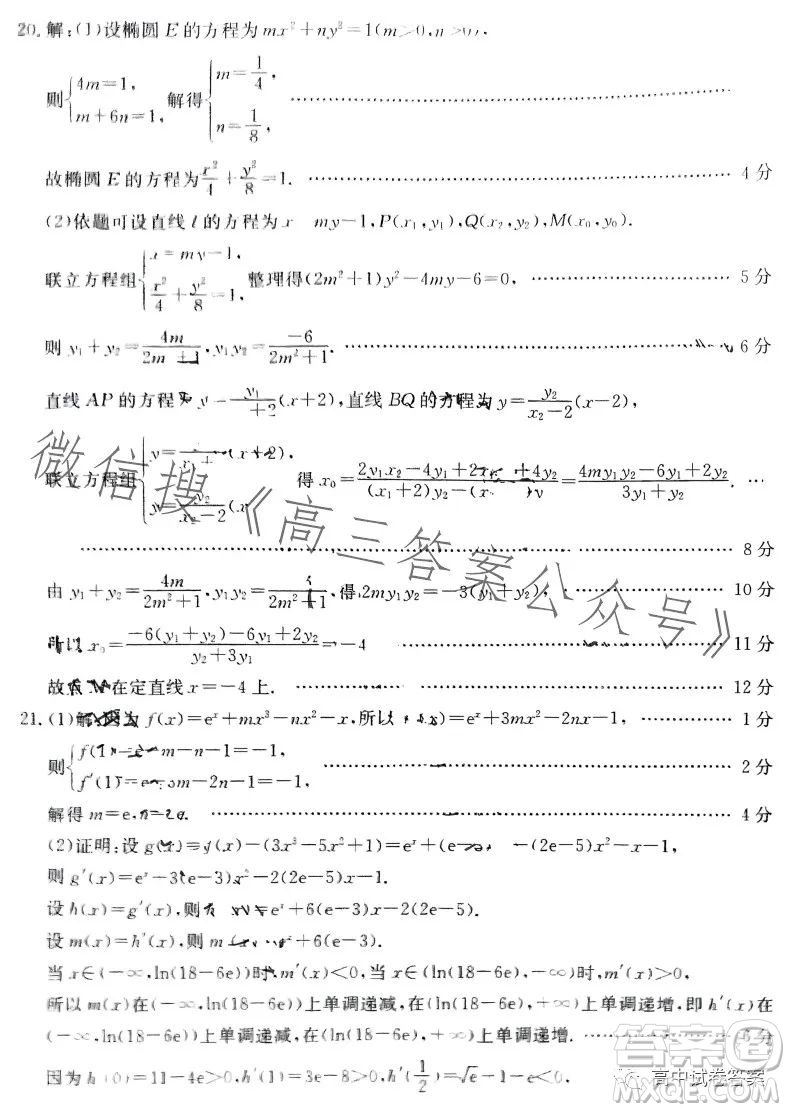 20. 解:(1)设椭圆 E 的方程为 mx²+ny²=1(m>0,n>0),
则{4m=1, m+6n=1, 解得{m=1/4, n=1/8,
故椭圆 E 的方程为x²/4+y²/8=1. 4 分
(2)依题可设直线 l 的方程为 x my-1,P(x₁,y₁),Q(x₂,y₂),M(x₀,y₀).
联立方程组{x=my-1, x²/4+y²/8=1, 整理得(2m²+1)y²-4my-6=0, 5 分
则 y₁+y₂=4m/(2m²+1),y₁y₂=-6/(2m²+1). 6 分
直线 AP 的方程 y=y₁/ +2(x+2),直线 BQ 的方程为 y=y₂/(x₂-2)(x-2),
联立方程组{y= (x+2), y=y₂/(x₂-2)(x-2) 得 x₀= =(4my₁y₂-6y₁+2y₂)/(3y₁+y₂). …
8 分
由 y₁+y₂=4m/(2m²+1),y₁y₂= /(2m²+1),得 2my₁y₂=-3(y₁+y₂), 10 分
所以 x₀=(-6(y₁+y₂)-6y₁+2y₂)/(y₂+3y₁)=-4 11 分
故点 M 在定直线 x=-4 上. 12 分
21. (1)解:因为 f(x)=eˣ+mx³-nx²-x,所以 (x)=eˣ+3mx²-2nx-1, 1 分
则{f(1) m-n-1=-1, f′(1)=e m-2n-1=-1, 2 分
解得 m=e,n=2e. 4 分
(2)证明:设 g(x)=f(x)-(3x³-5x²+1)=eˣ+(e- -1,
则 g′(x)=eˣ-3(3-e)x²-2(2e-5)x-1.
设 h(x)=g′(x),则 eˣ+6(e-3)x-2(2e-5).
设 m(x)=h′(x),则 m +6(e-3).
当 x∈(-∞,ln(18-6e))时,m′(x)<0,当 x∈(ln(18-6e),+∞)时,m′(x)>0,
所以 m(x)在(-∞,ln(18-6e))上单调递减,在(ln(18-6e),+∞)上单调递增,即 h′(x)在
(-∞,ln(18-6e))上单调递减,在(ln(18-6e),+∞)上单调递增. 分
因为 h′(0)=11-4e>0,h′(1)=3e-8>0,h′(1/2)=√e-1-e<0,
微信搜《高三答案公众号》
答案圈
高中试卷答案